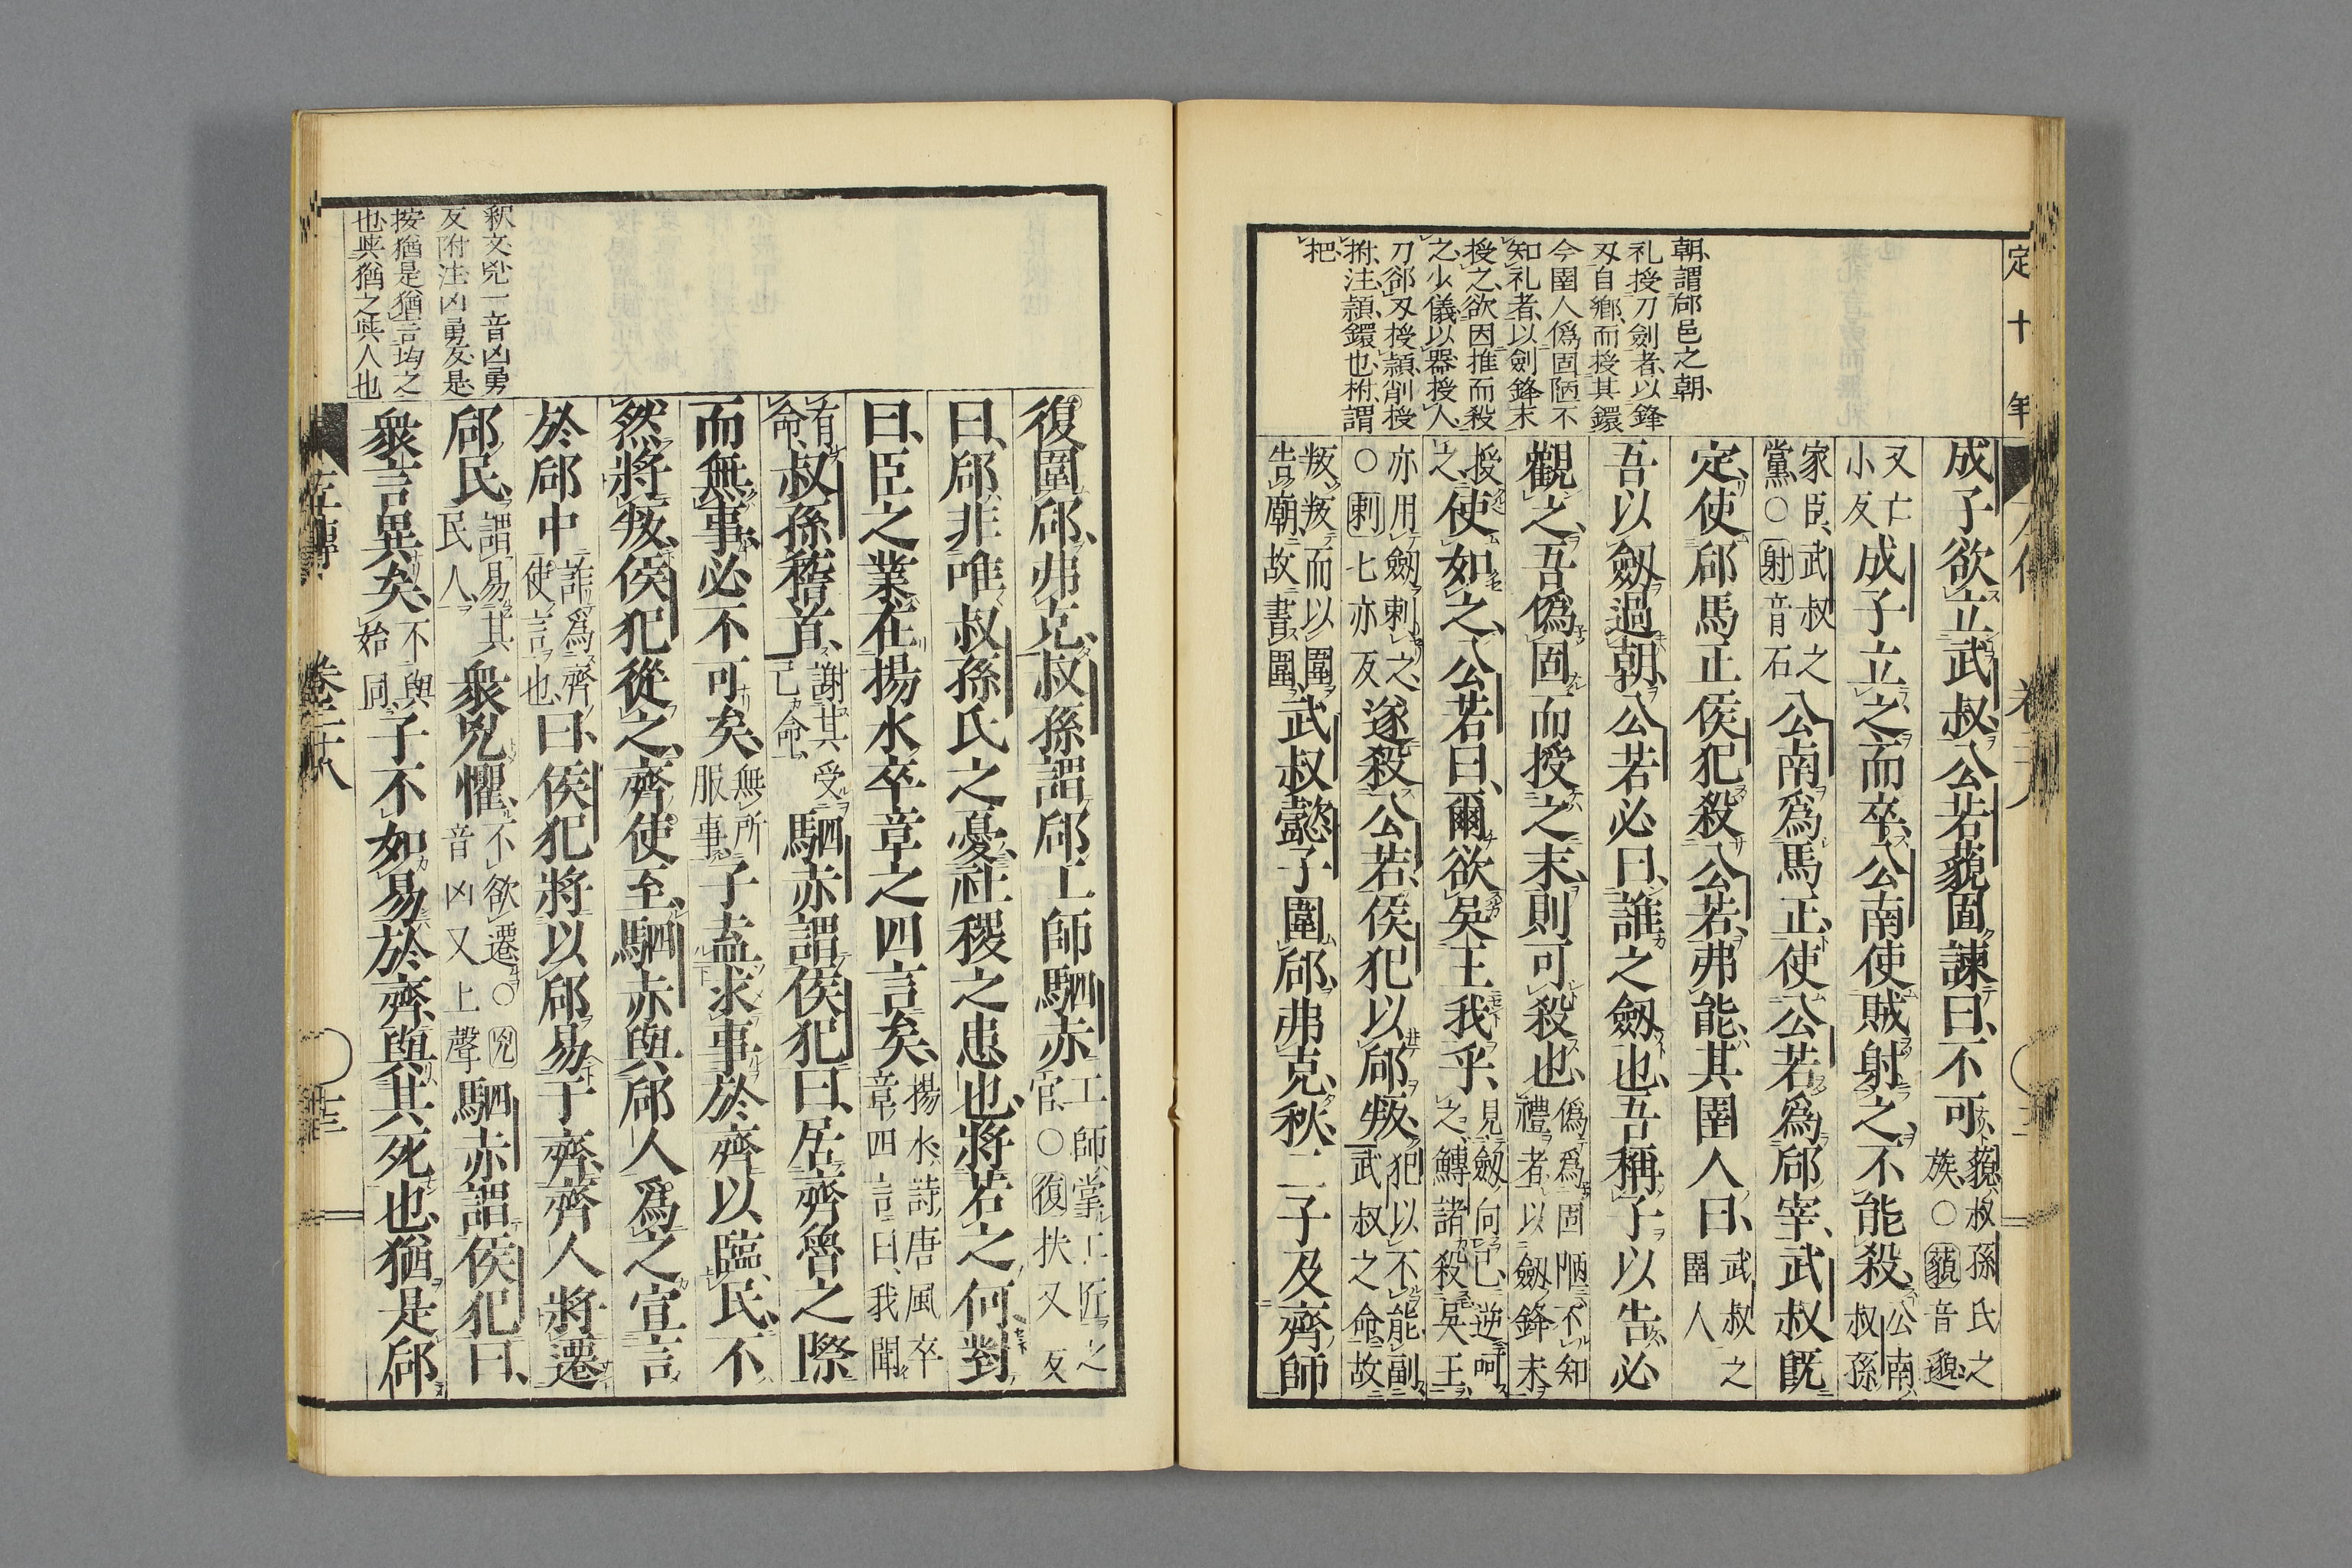 定十年
朝、謂郈邑之朝、
礼授刀劍者、以鋒
刃自鄉、而授其鐶
今圉人僞固陋不
知礼者、以劍鋒末
授之、欲因推而殺
之、少儀、以器授人、
刀郤刃授穎、削授
拊、注、穎、鐶也、柎、謂
杷
成子欲立武叔、公若藐固諫曰、不可、藐、叔孫氏之族、○藐音邈
又亡小反成子立之而卒、公南使賊射之、不能殺、公南、叔孫
家臣、武叔之黨○射音石公南爲馬正、使公若爲郈宰、武叔既
定、使郈馬正侯犯殺公若、弗能、其圉人曰、武叔之圉人
吾以劔過朝、公若必曰、誰之劔也、吾稱子以告、必
觀之、吾僞固而授之末、則可殺也、僞爲固陋不知禮者、以劔鋒末
授之使如之、公若曰、爾欲吳王我乎、見劔向己、逆呵之、鱄諸殺吳王
亦用劔刺之、○刺七亦反遂殺公若、侯犯以郈叛、犯以不能副武叔之命、故
叛、叛而以圍告廟、故書圍、武叔懿子圍郈、弗克、秋、二子及齊師
復圍郈、弗克、叔孫謂郈工師駟赤工師、掌工匠之官、○復扶又反
曰、郈非唯叔孫氏之憂、社稷之患也、將若之何、對
曰、臣之業、在揚水卒章之四言矣、揚水、詩唐風、卒章四言曰、我聞
有命、叔孫稽首、謝其受己命、駟赤謂侯犯曰、居齊魯之際
而無事、必不可矣、無所服事、子盍求事於齊以臨民、不
然、將叛、侯犯從之、齊使至、駟赤與郈人爲之宣言
於郈中詐爲齊使言也、曰、侯犯將以郈易于齊、齊人將遷
郈民、謂易其民人、衆兇懼、不欲遷、○兇音凶又上聲駟赤謂侯犯曰、
衆言異矣、不與始同、子不如易於齊、與其死也、猶是郈
釈文、兇一音凶勇
反、附注、凶勇反、是
按猶是、猶言均之
也、與猶之與人也
左傳 卷二十八